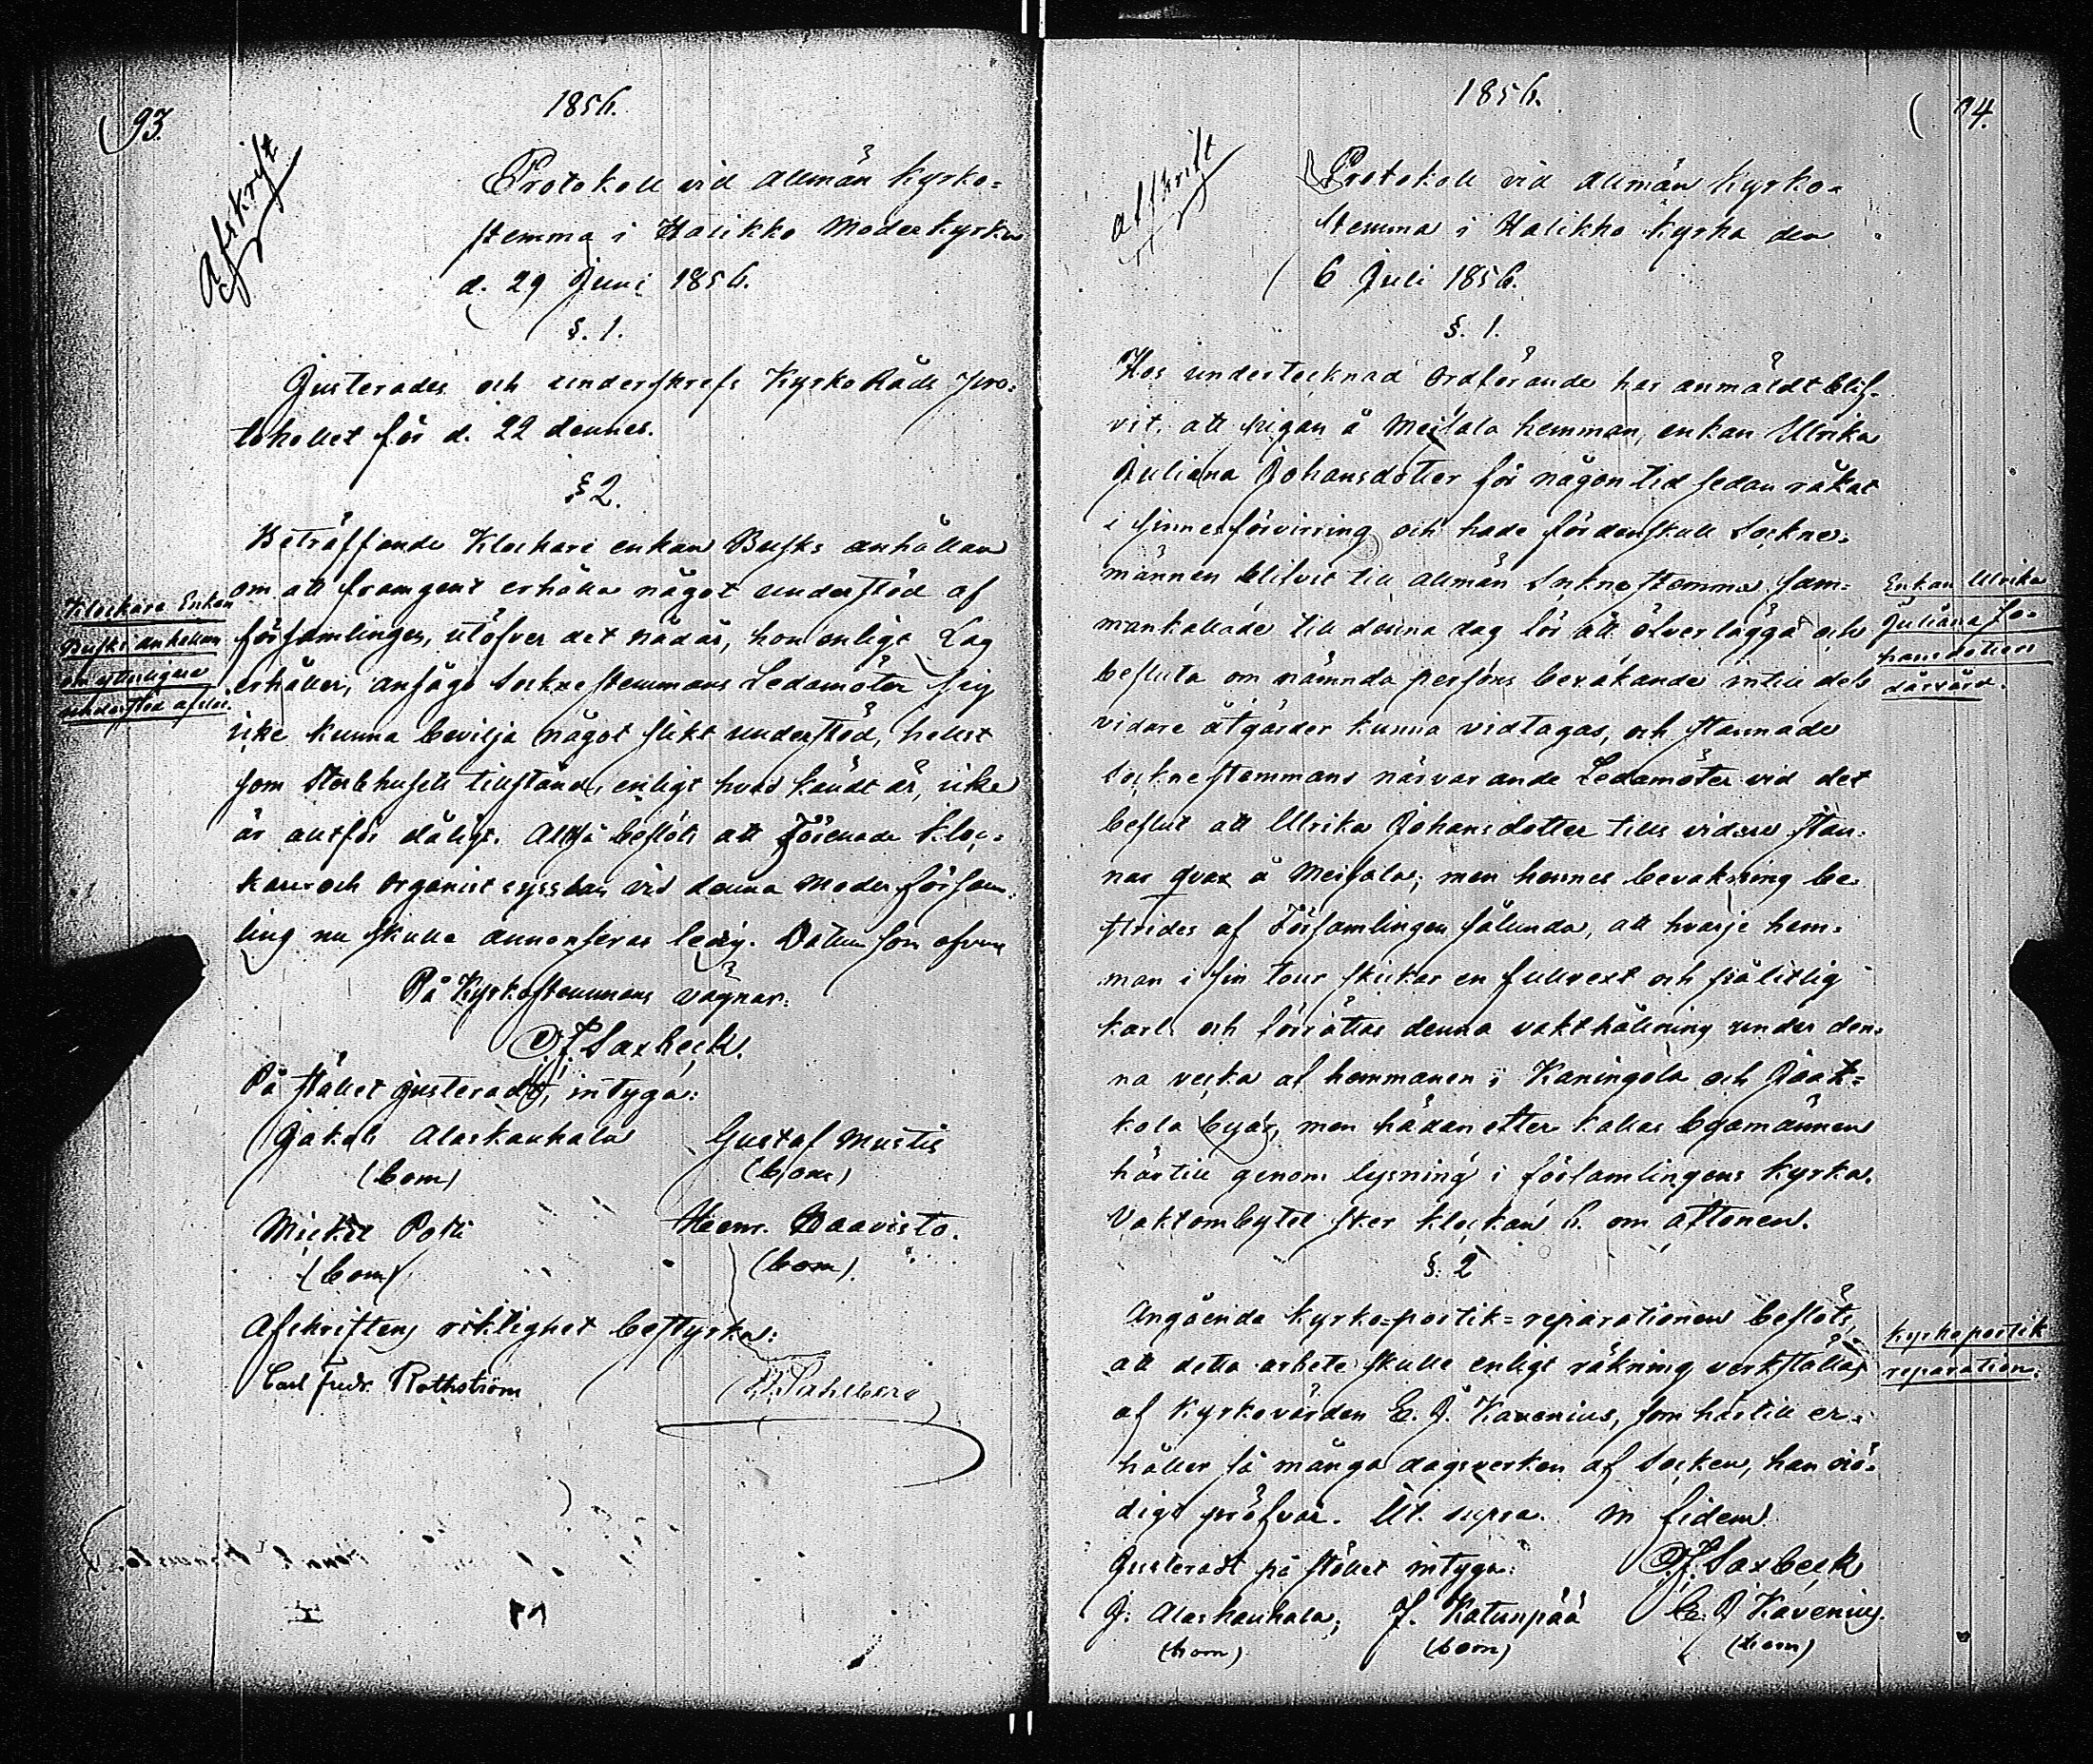 93.
1856.
Afskrift
Protokoll vid allmän Kyrko-
stemma i Halikko Moderkyrka
d. 29 Juni 1856.
§. 1.
Justerades och underskrefs KyrkoRåds pro-
tokollet för d. 22 dennes.
§ 2.
Beträffande Klockare enkan Busks anhållan
om att framgent erhålla något understöd af
församlingen, utöfver det nådår, hon enligt Lag
erhåller, ansågo Sockne stemmans Ledamöter sig
icke kunna bevilja något slikt understöd, helst
som Stockhusets tillstånd, enligt hvad kändt är, icke
är altför dåligt. Altså beslöts att Förenade kloc-
kare och Organist sysslan vid denna Moder försam-
ling nu skulle annonseras ledig. Datum som ofvan
På Kyrkostemmans vägnar:
F. Saxbeck.
På stället justeradt, intyga:
Jakob Alaskauhala Gustaf Mustis
(bom) (bom)
Mickel Potti Henr. Haavisto.
(bom) (bom).
Afskriftens riktighet bestyrka:
Carl Fredr. Rothström Sahlberg
Klockare Enkan
Busks anhållan
om ytterligare
understöd afslås.
94.
1856.
afskrift
Protokoll vid allmän Kyrko-
stemma i Halikko kyrka den
6 Juli 1856.
§. 1.
Hos undertecknad Ordförande har anmäldt blif-
vit, att pigan å Meisala hemman, enkan Ulrika
Juliana Johansdotter för någon tid sedan råkat
i sinnesförvirring och hade fördenskull Sockne-
männen blifvit till allmän Socknestemma sam-
mankallade till denna dag för att öfverlägga och
besluta om nämnda persons bevakande intill dess
vidare åtgärder kunna vidtagas, och stannade
Socknestemmans närvarande Ledamöter vid det
beslut att Ulrika Johansdotter tills vidare stan-
nar qvar å Meisala; men hennes bevakning be-
strides af Församlingen sålunda, att hvarje hem-
man i sin tour skickar en fullvext och pålitlig
karl och förrättas denna vakthållning under den-
na vecka af hemmanen i Kaningola och Jaat-
kola byar, men hädanefter kallas byamännen
härtill genom lysning i församlingens kyrka.
Vaktombytet sker klockan 6. om aftonen.
§. 2
Angående kyrko-portik-reparationen beslöts
att detta arbete skulle enligt räkning verkställas
af Kyrkovärden E. J. Kavenius, som härtill er-
håller så många dagsverken af Socken, han nö-
digt pröfvar. Ut supra. In fidem
Justeradt på stället intyga: F. Saxbeck
J. Alaskauhala, J. Katunpää E. J. Kavenius.
(bom) (bom) (bom)
Enkan Ulrika
Juliana Jo-
hansdotters
dårvård.
Kyrkoportik
reparation.